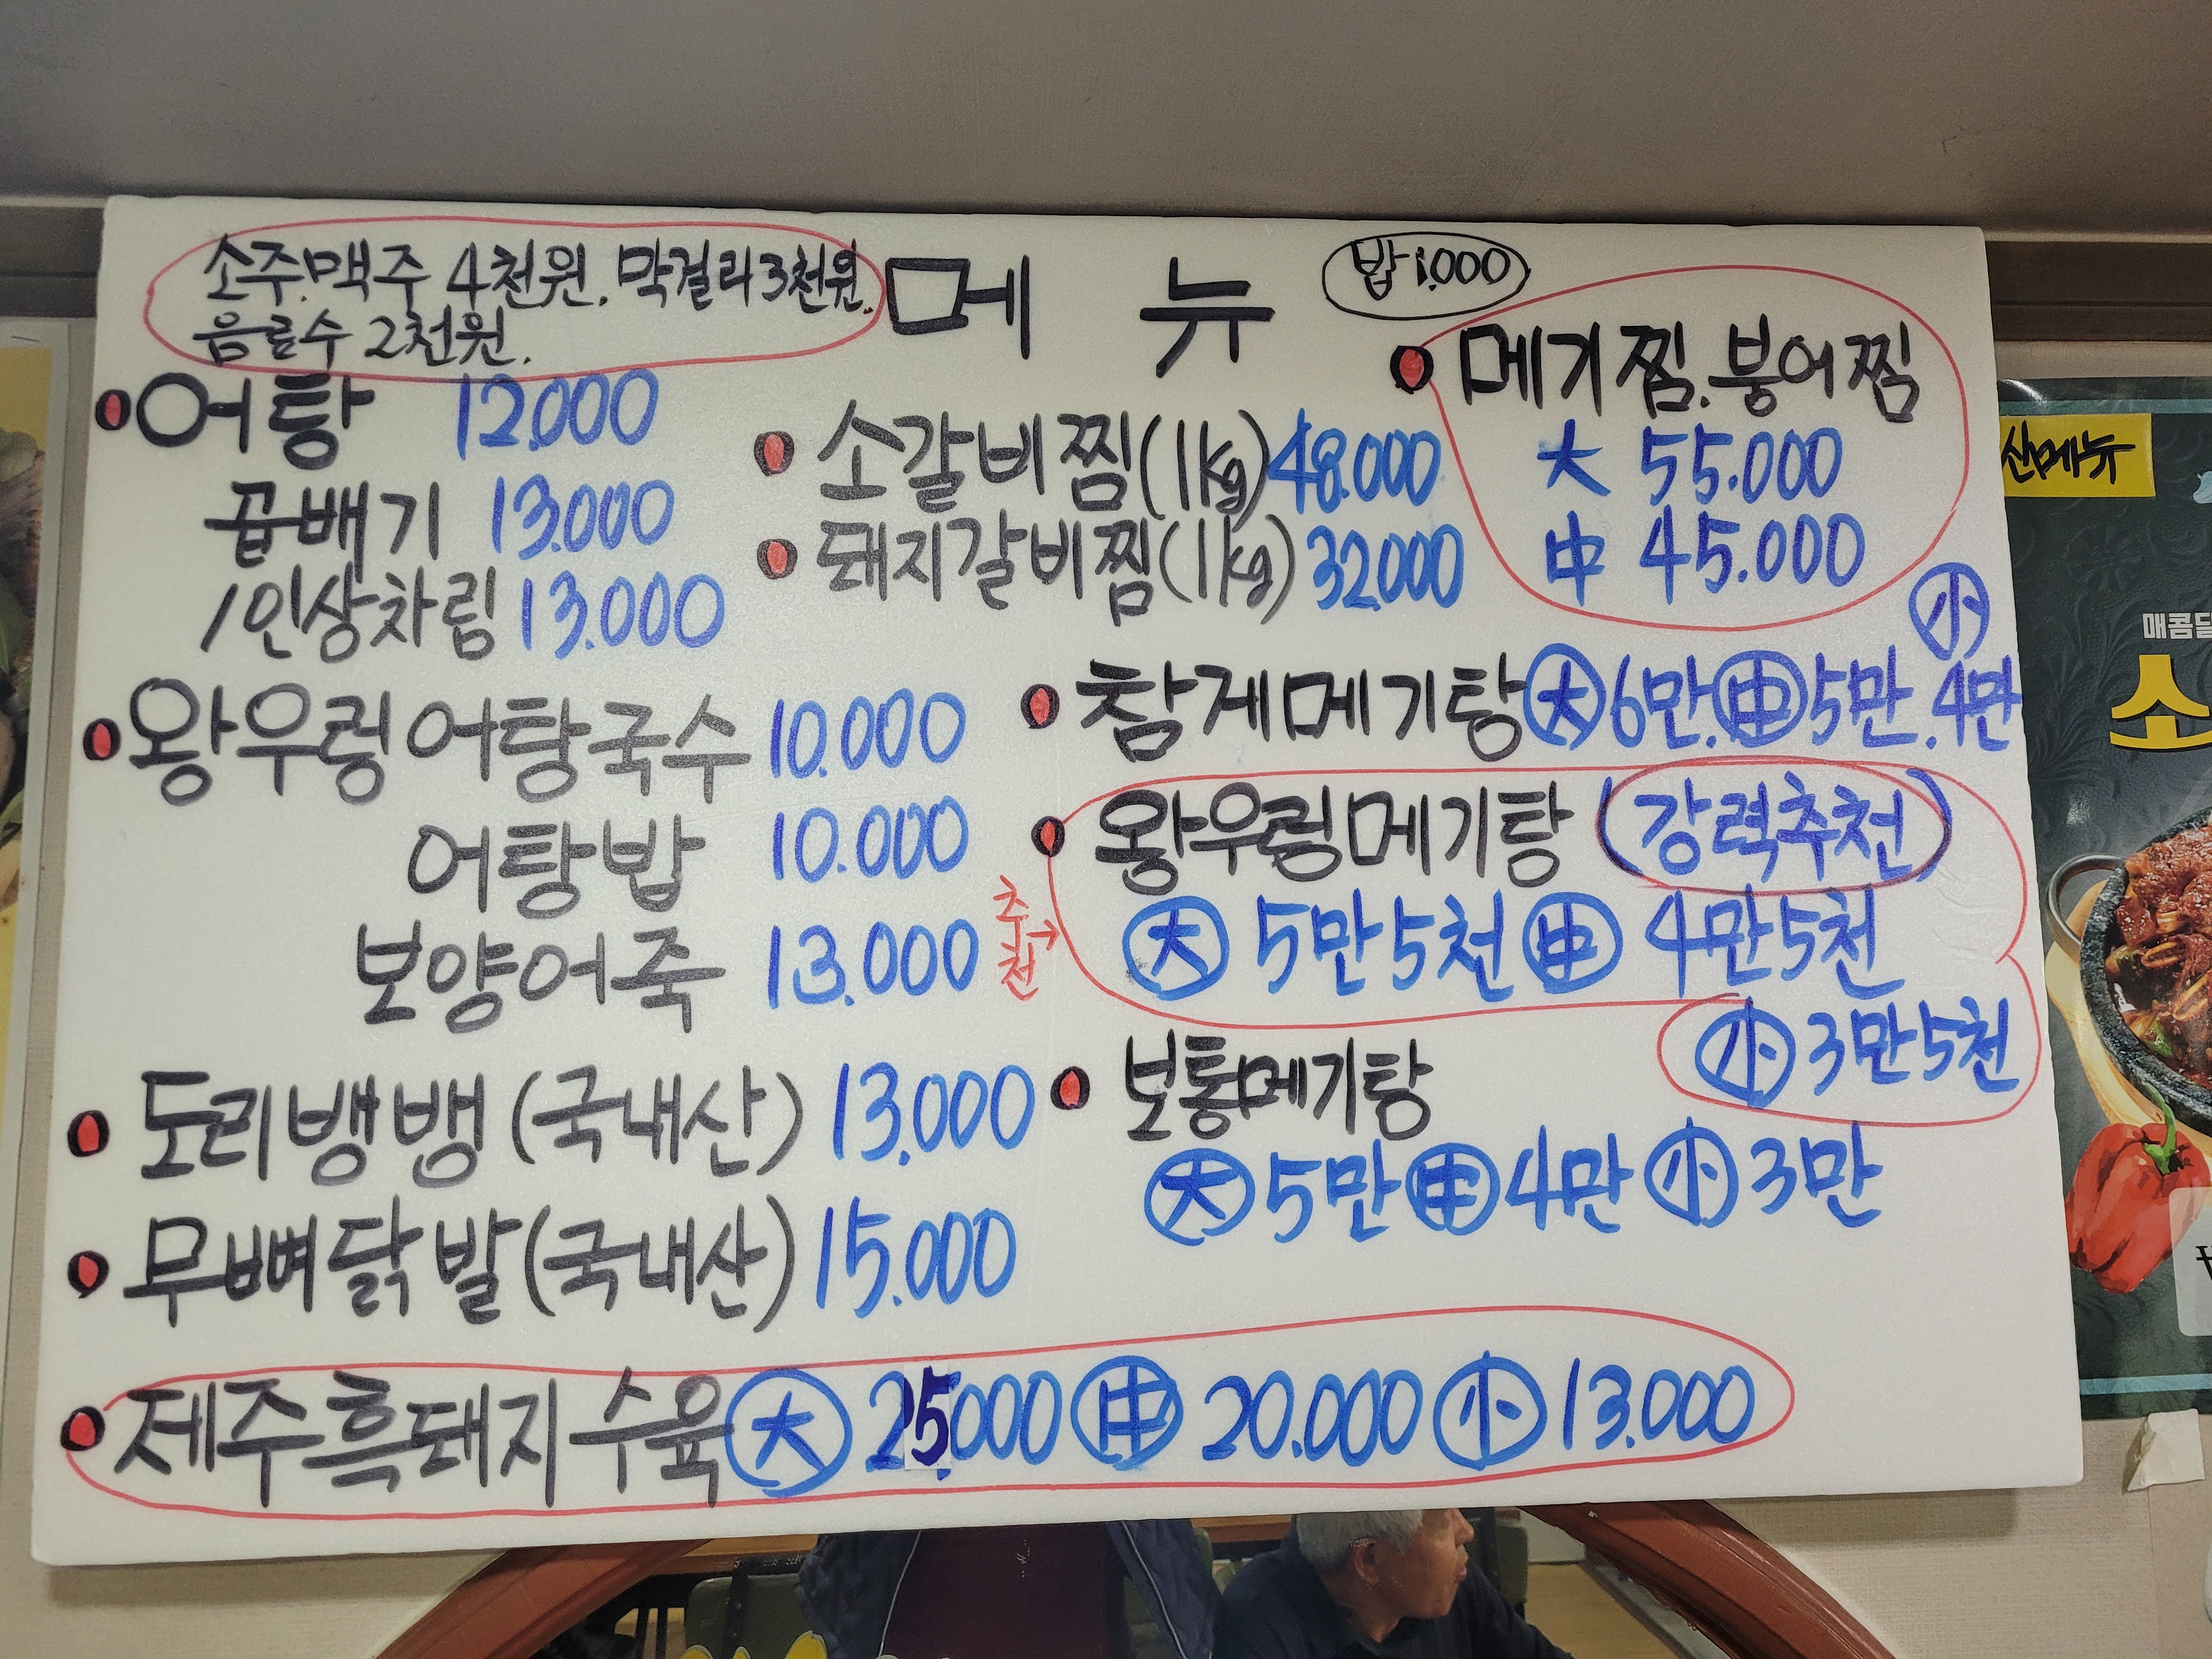 소주.맥주 4천원. 막걸리 3천원.
음료수 2천원.
메 뉴
밥 1.000
어탕 12.000
곱빼기 13.000
1인상차림 13.000
왕우렁 어탕국수 10.000
어탕밥 10.000
보양어죽 13.000
도리뱅뱅 (국내산) 13.000
무뼈닭발 (국내산) 15.000
소갈비찜(1kg) 48.000
돼지갈비찜(1kg) 32.000
메기찜.붕어찜
大 55.000
中 45.000
小
참게메기탕 大 6만. 中 5만. 4만
왕우렁메기탕 (강력추천)
추천→
大 5만5천 中 4만5천
小 3만5천
보통메기탕
大 5만 中 4만 小 3만
제주흑돼지 수육 大 25.000 中 20.000 小 13.000
매콤달
소